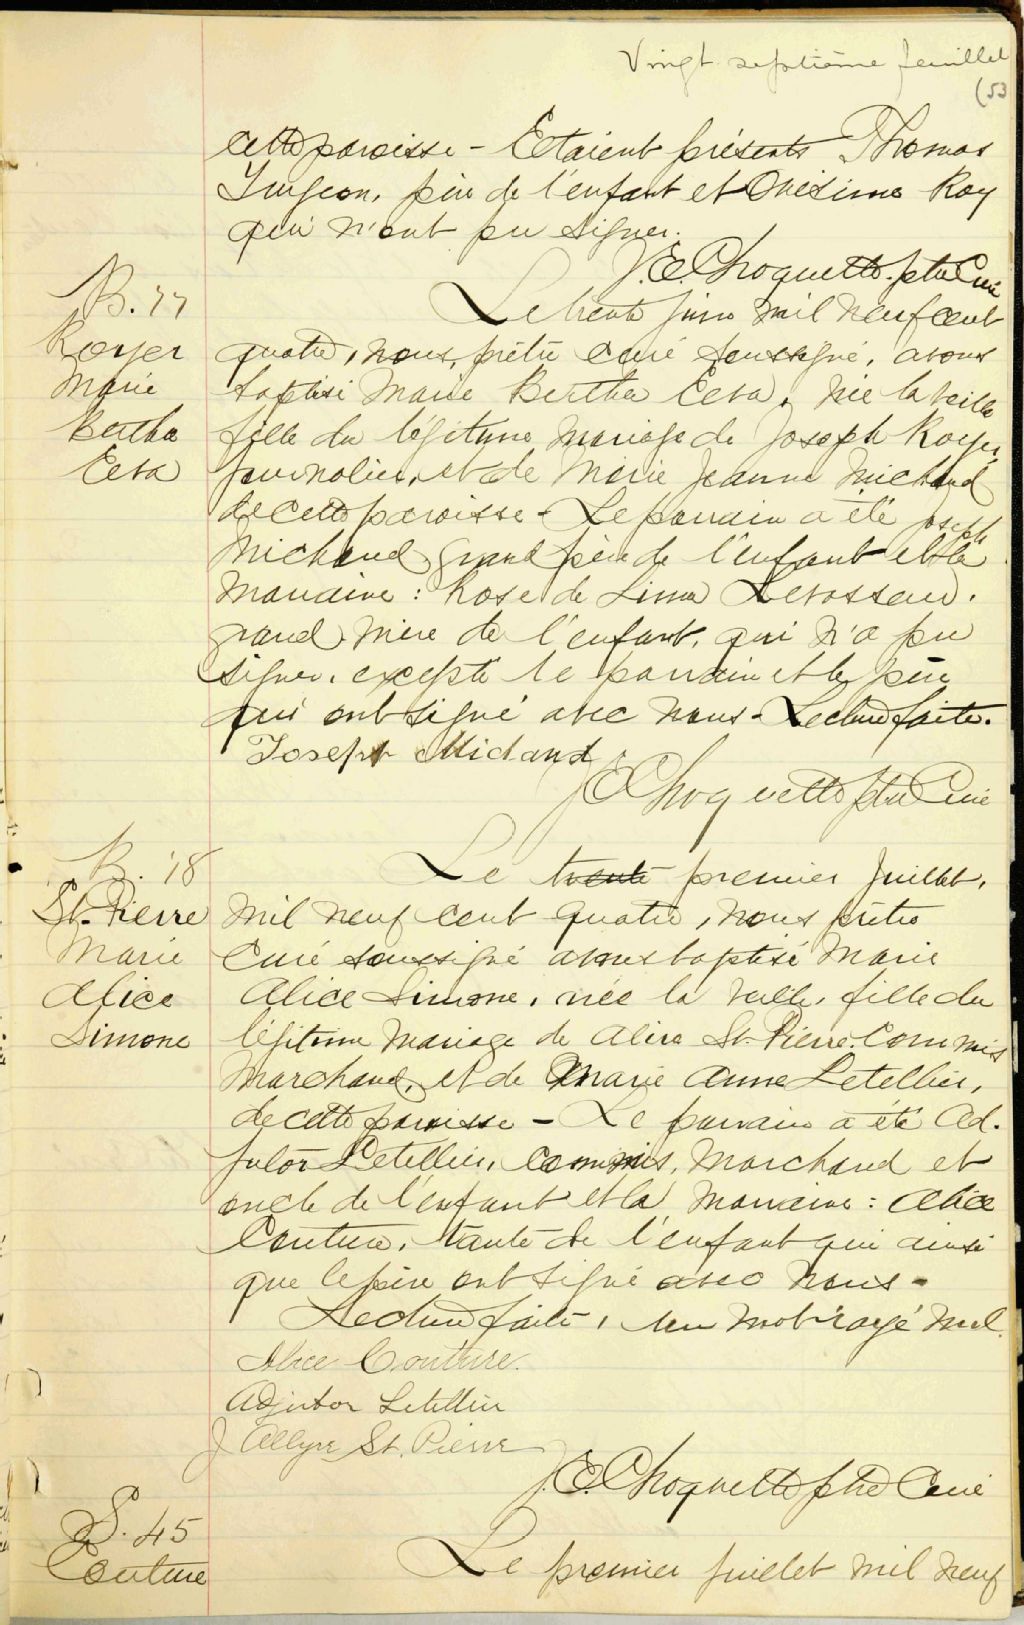 Vingt septième feuillet
(53
cette paroisse - Etaient présents Thomas
Turgeon, père de l'enfant et Onésime Roy
qui n'ont pu signer.
J. E. Choquette, ptre Curé
B. 77
Royer
Marie
Bertha
Eeva
Le trente juin mil neuf cent
quatre, nous, prêtre curé soussigné, avons
baptisé Marie Bertha Eeva, née la veille
fille du légitime mariage de Joseph Royer,
journalier, et de Marie Jeanne Michaud
de cette paroisse - Le parrain a été Joseph
Michaud grand père de l'enfant et la
Marraine : Rose de Lima Levasseur,
grand mère de l'enfant, qui n'a pu
signer, excepté le parrain et le père
qui ont signé avec nous - Lecture faite.
Joseph Michaud
J E Choquette ptre Curé
B. 78
St-Pierre
Marie
Alice
Simone
Le trente premier Juillet,
mil neuf cent quatre, nous prêtre
curé soussigné avons baptisé Marie
Alice Simone, née la veille, fille du
légitime mariage de Alire St-Pierre Commis
Marchand, et de Marie Anne Letellier,
de cette paroisse - Le parrain a été Ad.
jutor Letellier, commis, Marchand et
oncle de l'enfant et la Marraine : Alice
Couture, tante de l'enfant qui ainsi
que le père ont signé avec nous -
Lecture faite, un mot rayé nul.
Alice Couture.
Adjutor Letellier
J Allyre St. Pierre
J. E. Choquette ptre Curé
S. 45
Couture
Le premier juillet mil neuf